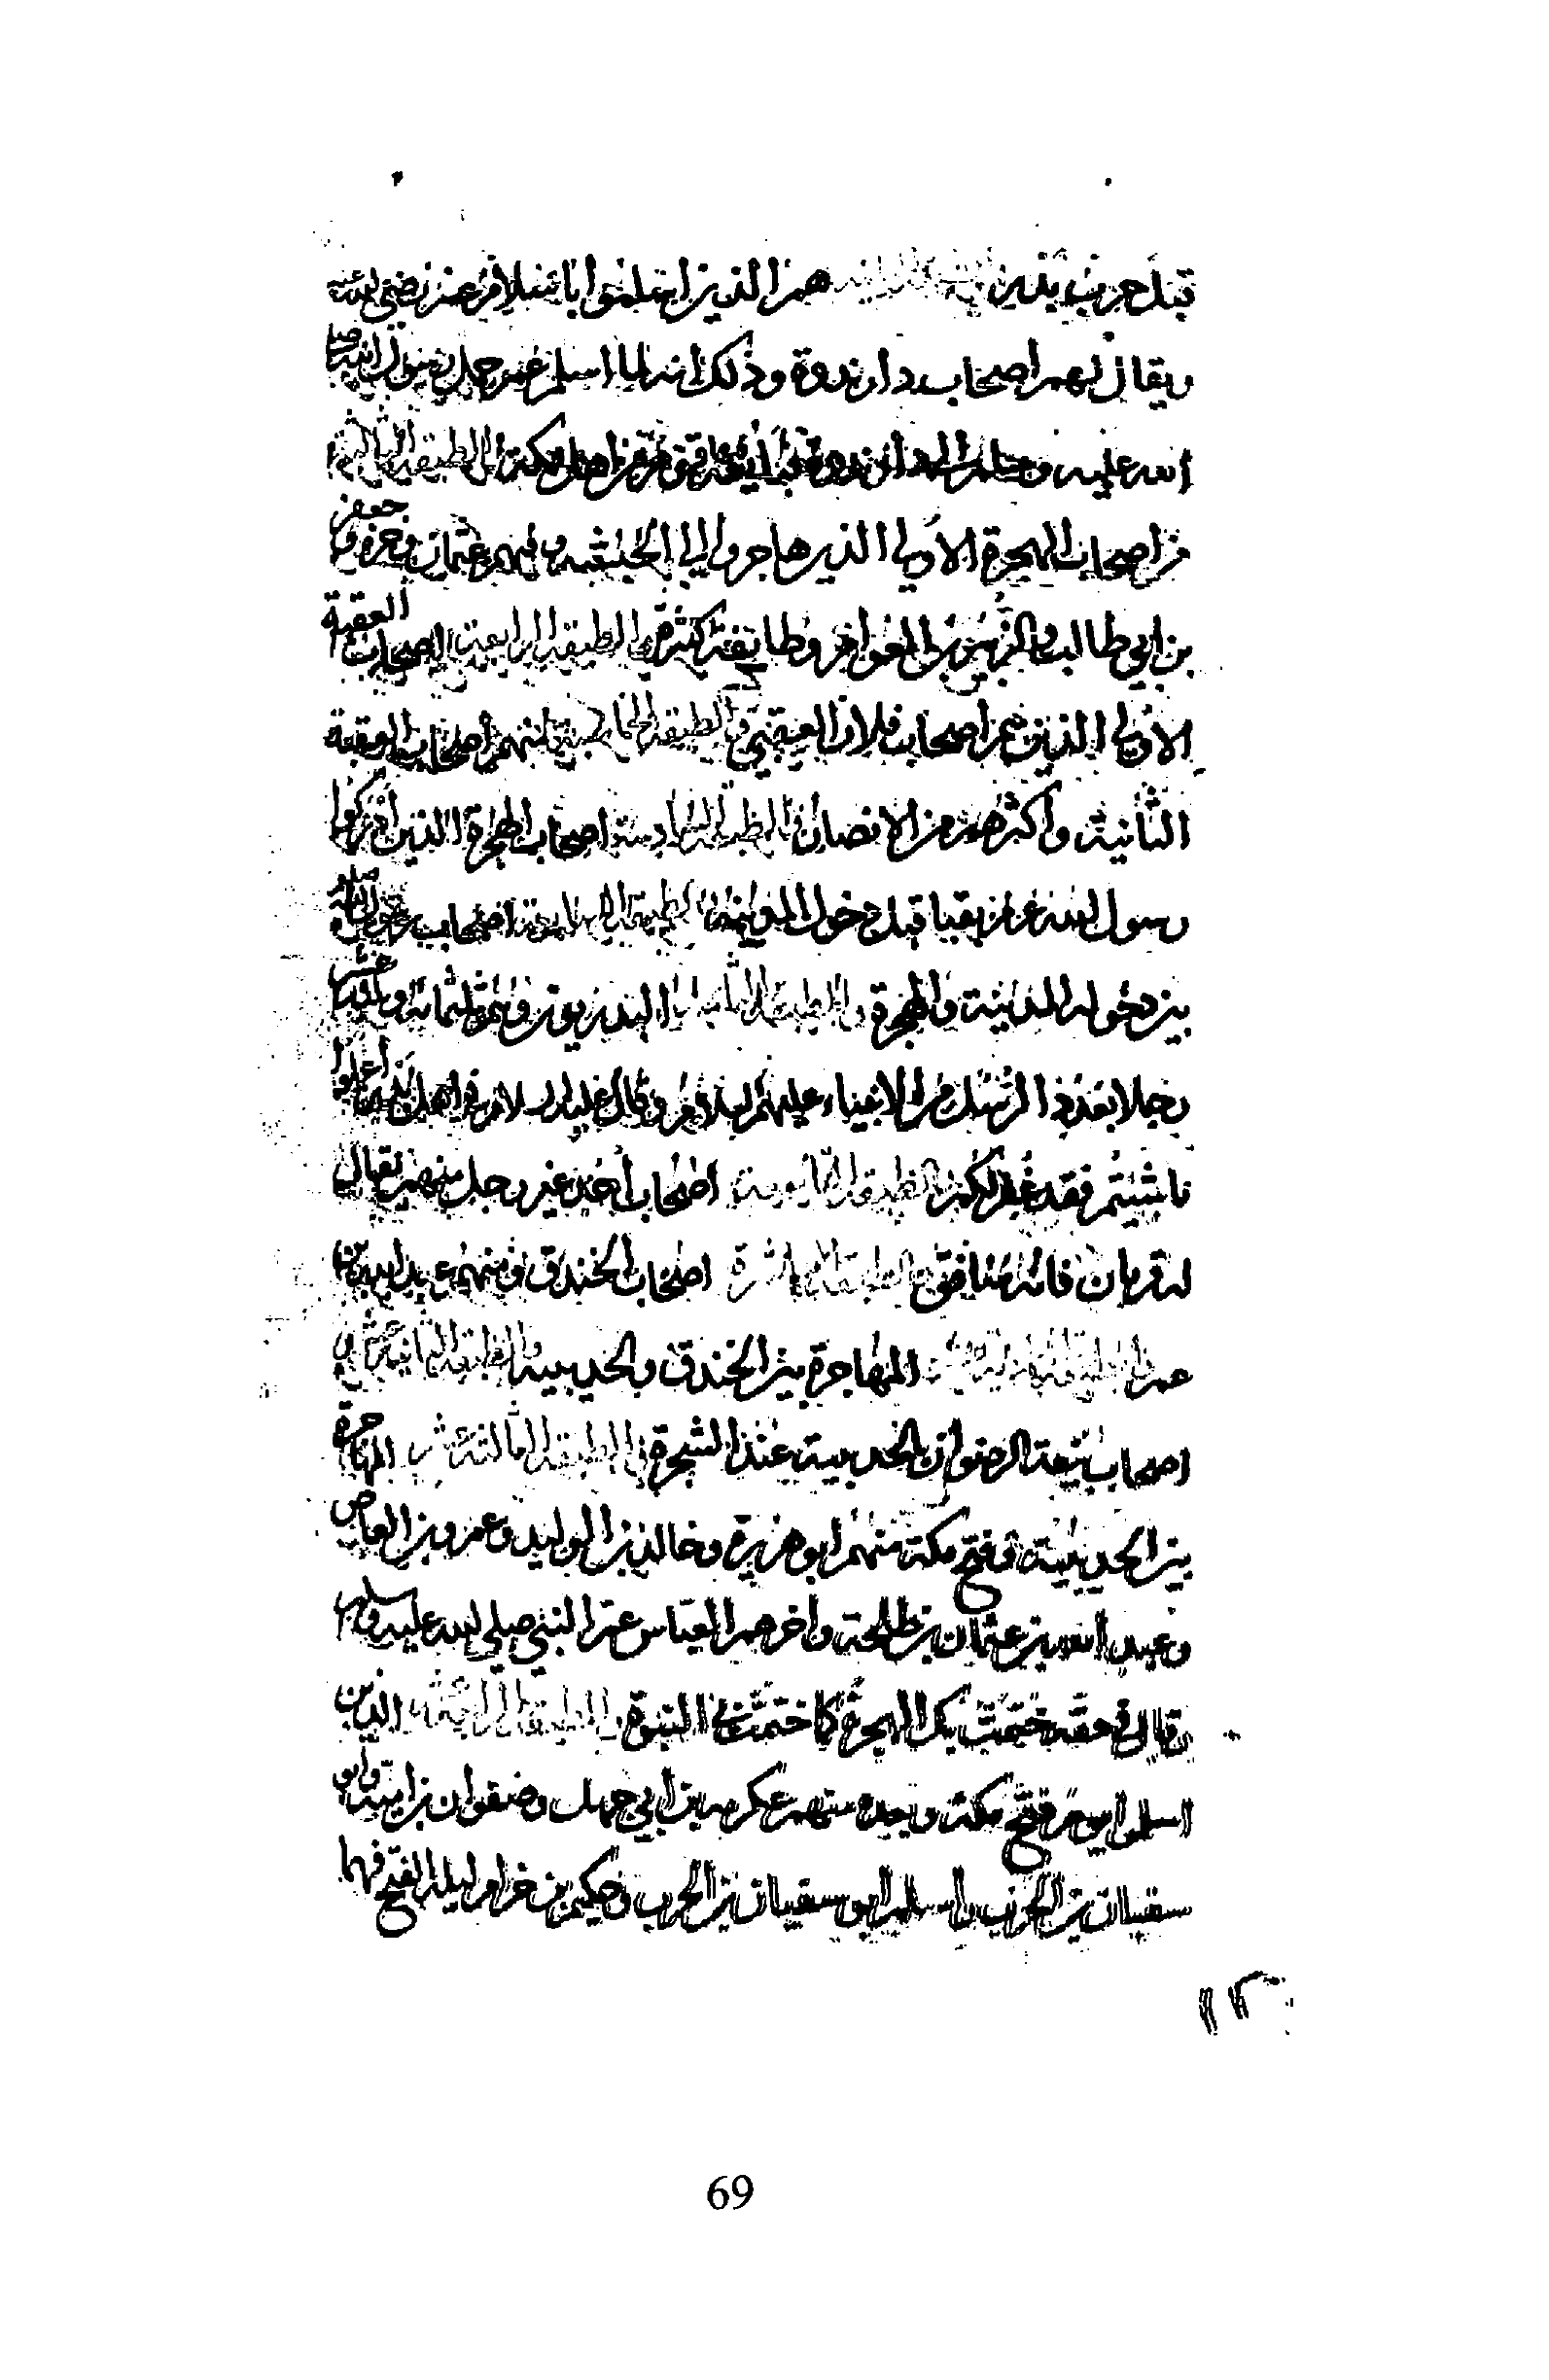 قبل حرب بدر هم الذين اسلموا باسلام عمر رضي الله عنه
ويقال لهم اصحاب دار ندوة وذلك انه لما اسلم عمر حمل رسول الله صلي
الله عليه وسلم الي دار ندوة فبايعه قوم من اهل مكة الطبقة الثالثة
من اصحاب الهجرة الاولي الذين هاجروا الي الحبشة وفيهم عثمان وحمزة وجعفر
بن ابي طالب والزبير بن العوام وطايفة كثيرة الطبقة الرابعة اصحاب العقبة
الاولي الذين هم اصحاب فلان العقبي والطبقة الخامسة منهم اصحاب العقبة
الثانية واكثرهم من الانصار الطبقة السادسة اصحاب الهجرة الذين ادركوا
رسول الله بقبا قبل دخول المدينة الطبقة السابعة اصحاب
بين دخوله المدينة والهجرة والطبقة الثامنة البدريون وهم ثلثماية وثلاثة عشر
رجلا بعدد الرسل من الانبياء عليهم السلام وقال عليه السلام في اهل بدر اعملوا
ما شيتم فقد غفر لكم الطبقة التاسعة اصحاب أحد غير رجل منهم يقال
له قزمان فانه منافق الطبقة العاشرة اصحاب الخندق ومنهم عبد الله بن
عمر الطبقة المهاجرة بين الخندق والحديبية والطبقة الثانية عشر
اصحاب بيعة الرضوان بالحديبية عند الشجرة الطبقة الثالثة عشر المهاجرة
بين الحديبية وفتح مكة منهم ابو هريرة وخالد بن الوليد وعمرو بن العاص
وعبد الله بن عثمان بن طلحة واخرهم العباس عم النبي صلي الله عليه وسلم
وقال في حقه ختمت بك الهجرة كما ختمت بي النبوة الطبقة الرابعة عشر الذين
اسلموا يوم فتح مكة وبعده منهم عكرمة بن ابي جهل وصفوان بن امية وابو
سفيان بن الحرب واسلم ابو سفيان بن الحرب وحكيم بن حزام ليلة الفتح فهما
١٢
69